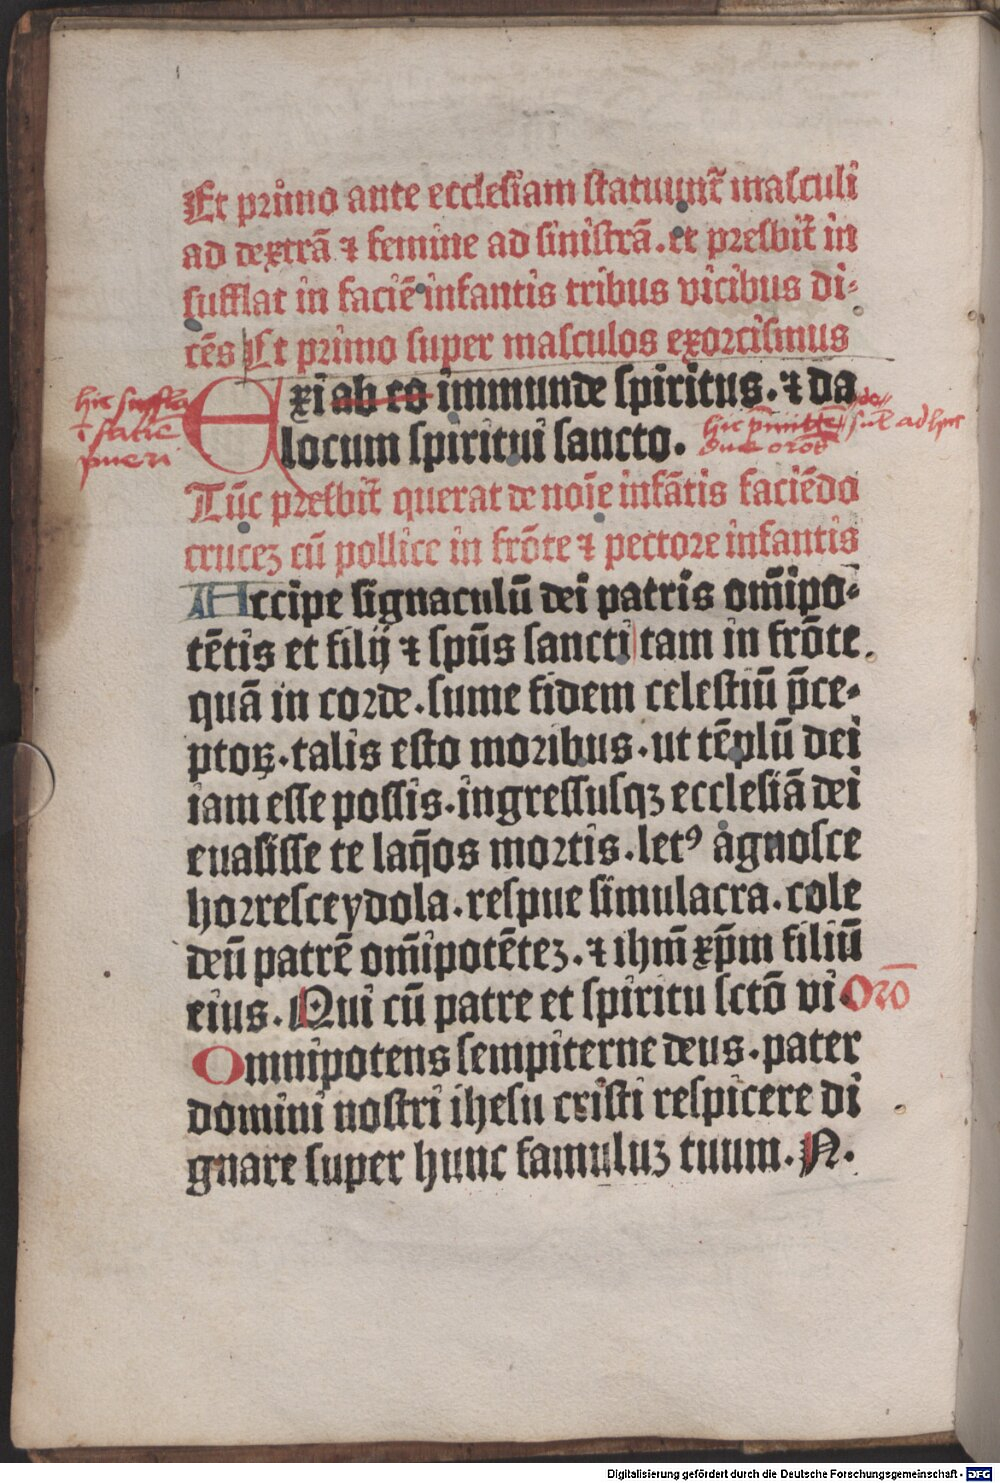 Et primo ante ecclesiam statuunt̄ masculi
ad dextrā ⁊ femine ad sinistrā. et presbit̄ in
sufflat in faciē infantis tribus vicibus di-
cēs Et primo super masculos exorcismus
Exi ab eo immunde spiritus. ⁊ da
locum spiritui sancto.
hic suffla
ī faciē
pueri
hic
due oroēs
Tūc presbit̄ querat de noīe infātis faciēdo
crucez cū pollice in frōte ⁊ pectore infantis
Accipe signaculū dei patris om̄ipo-
tētis et filij ⁊ spūs sancti tam in frōte
quā in corde. sume fidem celestiū p̄ce-
ptoꝝ. talis esto moribus. ut tēplū dei
iam esse possis. ingressusqꝫ ecclesiā dei
euasisse te laq̄os mortis. letꝰ agnosce
horresce ydola. respue simulacra. cole
deū patrē om̄ipotētez. ⁊ ihm̄ xp̄m filiū
eius. Qui cū patre et spiritu sctō vi Orō
Omnipotens sempiterne deus. pater
domini nostri ihesu cristi respicere di
gnare super hunc famuluz tuum. N.
Digitalisierung gefördert durch die Deutsche Forschungsgemeinschaft - DFG